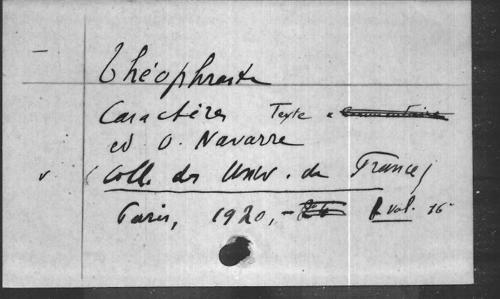 Théophraste
Caractères Texte
ed O. Navarre
(Coll. des Univ. de France)
Paris, 1920,- 1 vol. 16-